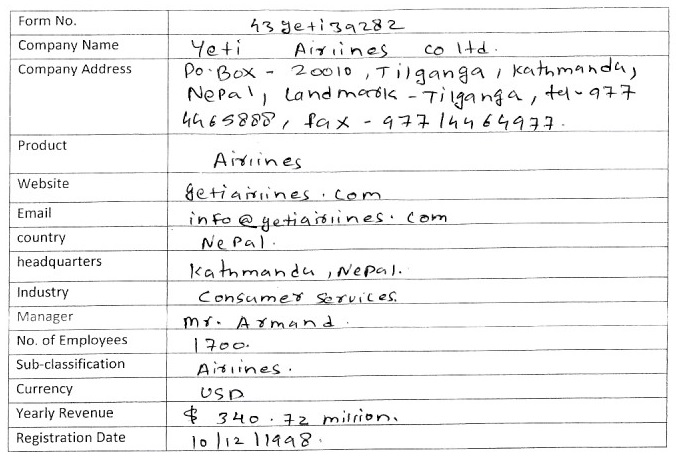 Form No. 43yeti39282
Company Name Yeti Airlines co ltd.
Company Address Po.Box - 20010, Tilganga, Kathmandu,
Nepal, Landmark - Tilganga, tel - 977
4465888, fax - 977 14464977.
Product Airlines
Website yetiairlines.com
Email info@yetiairlines.com
country Nepal.
headquarters Kathmandu, Nepal.
Industry Consumer Services.
Manager Mr. Armand.
No. of Employees 1700.
Sub-classification Airlines.
Currency USD
Yearly Revenue $ 340.72 million.
Registration Date 10/12/1998.